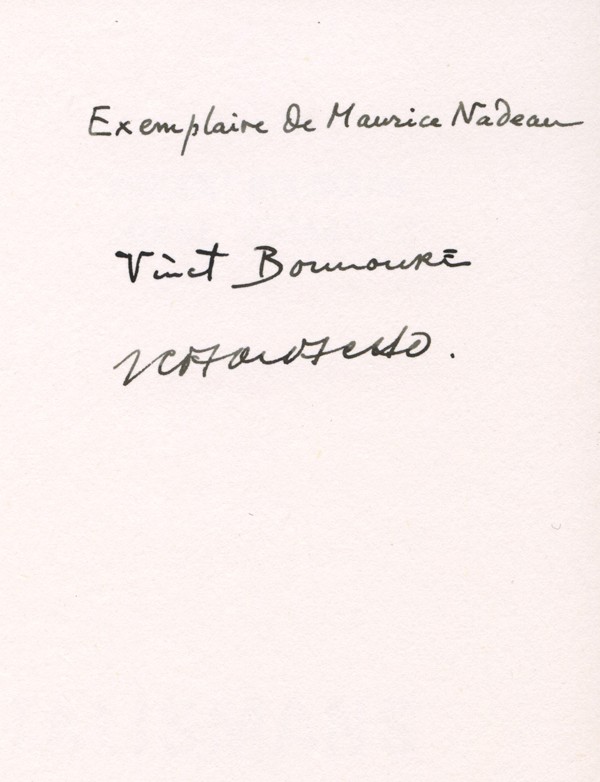 Exemplaire de Maurice Nadeau
Vinct Bounoure